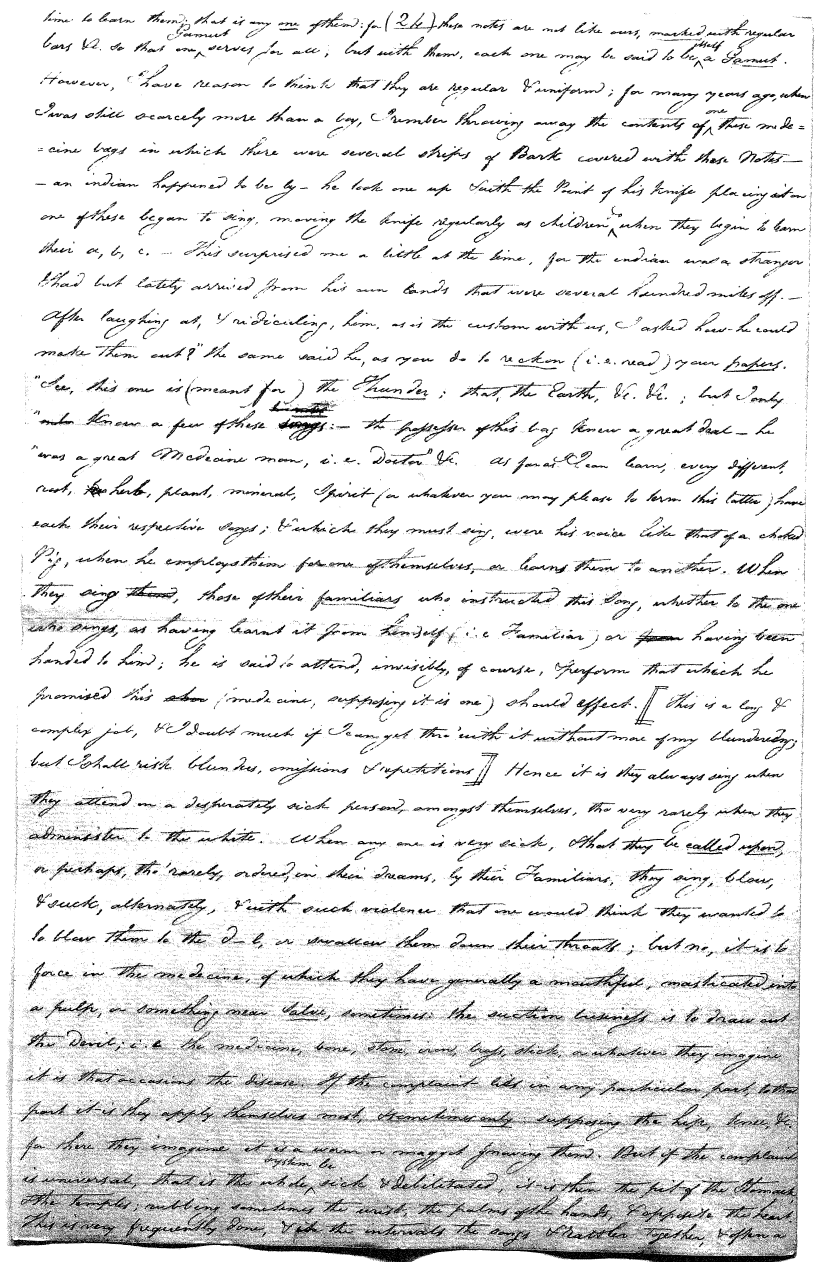 time to learn them; that is any one of them: for (24) these notes are not like ours, marked with regular
bars &c. so that one Gamut serves for all; but with them, each one may be said to be itself a Gamut.
However, I have reason to think that they are regular & uniform; for many years ago, when
I was still scarcely more than a boy, I rember throwing away the contents of one these mede=
=cine bags in which there were several strips of Bark covered with these Notes—
— an indian happened to be by — he took one up & with the Point of his Knife placing it on
one of these began to sing, moving the knife regularly as children do when they begin to learn
their a, b, c. — This surprised me a little at the time, for the indian was a stranger
& had but lately arrived from his own lands that were several hundred miles off. —
After laughing at, & ridiculing, him, as is the custom with us, I asked how he could
make them out? "the same said he, as you do to reckon (i.e. read) your papers.
"See, this one is (meant for) the Thunder; that, the Earth, &c. &c.; but I only
" Know a few of these songs: — the possessor of this bag knew a great deal — he
"was a great Medecine man, i.e. Doctor" &c. As far as I can learn, every different,
root, herb, plant, mineral, Spirit (or whatever you may please to term this latter) have
each their respective songs; & which they must sing, were his voice like that of a choked
Pig, when he employs them for one of themselves, or learns them to another. When
they sing them, those of their familiars who instructed this Song, whether to the one
who sings, as having learnt it from himself (i.e. Familiar) or from having been
handed to him; he is said to attend, invisibly, of course, & perform that which he
promised this (medecine, supposing it is one) should effect. [ This is a long &
complex job, & I doubt much if I can get thro' with it without more of my blunders;
but I shall risk blunders, omissions & repetitions ] Hence it is they always sing when
they attend on a desperately sick person, amongst themselves, tho very rarely when they
administer to the white. When any one is very sick, & that they be called upon,
or perhaps, tho' rarely, ordered, in their dreams, by their Familiars, they sing, blow,
& suck, alternately, & with such violence that one would think they wanted to
to blow them to the d—l, or swallow them down their throats; but no, it is to
force in the medecine, of which they have generally a mouthful, masticated into
a pulp, or something near Salve, sometimes: the suction business is to draw out
the Devil; i.e. the medecine, bone, stone, iron, brass, stick, or whatever they imagine
it is that occasions the disease. If the complaint lies in any particular part, to that
part it is they apply themselves most, sometimes only: supposing the hip, knee, &c.
for there they imagine it is a worm or maggot gnawing them. But if the complaint
is universal, that is the whole system be sick & debilitated, it is then the pit of the Stomach
& the temples; rubbing sometimes the wrist, the palms of the hands, & opposite the heart
This is very frequently done, & in the intervals the songs & rattles together, & often a